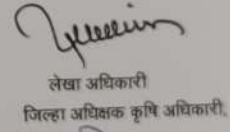 लेखा अधिकारी
जिल्हा अधिक्षक कृषि अधिकारी,